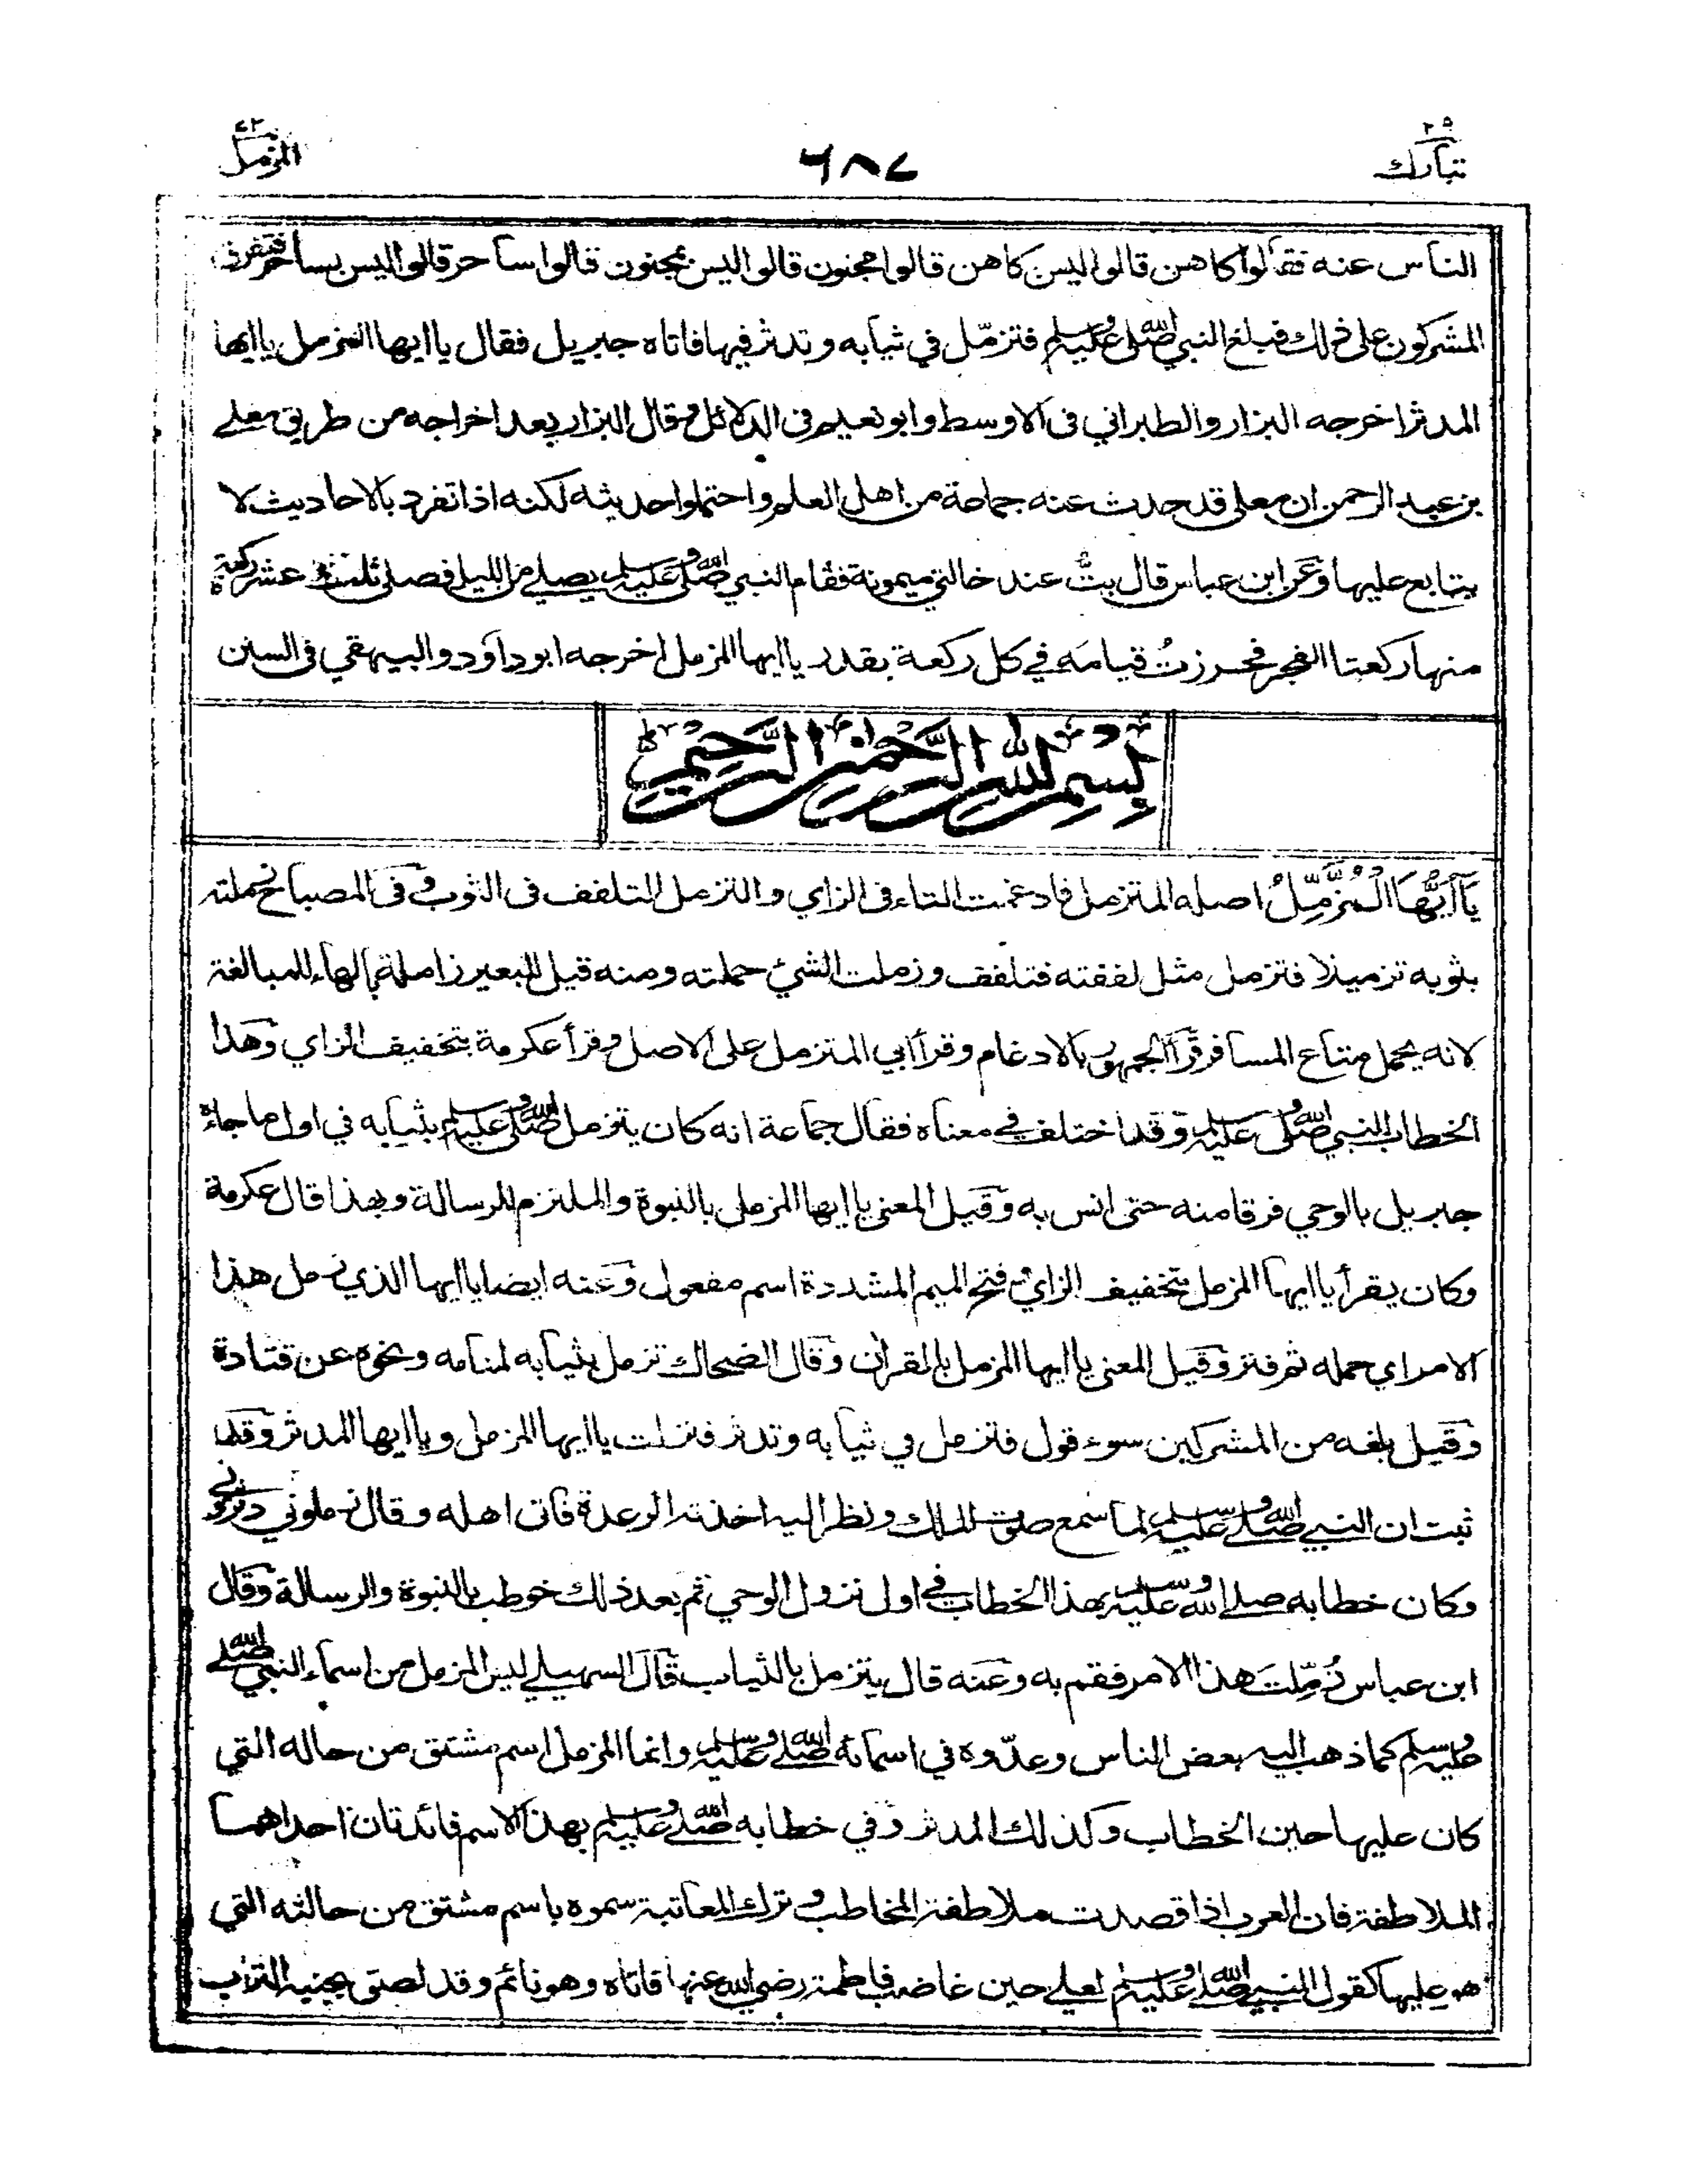 ٢٩
تبارك
٦٨٧
٧٣
المزمل
الناس عنه فقالوا كاهن قالوا ليس كاهن قالوا مجنون قالوا ليس بمجنون قالوا ساحر قالوا ليس بساحر فتفرق
المشركون على ذلك فبلغ النبي صلى الله عليه وسلم فتزمّل في ثيابه وتدثر فيها فاتاه جبريل فقال يا ايها المزمل يا ايها
المدثر اخرجه البزار والطبراني فى الاوسط وابو نعيم فى الدلائل وقال البزار بعد اخراجه من طريق معلے
بن عبد الرحمن ان معلى قد حدث عنه جماعة من اهل العلم واحتملوا حديثه لكنه اذا تفرد بالاحاديث لا
يتابع عليها وعن ابن عباس قال بتُّ عند خالتي ميمونة فقام النبي صلى الله عليه وسلم يصلے من الليل فصلى ثلث عشر ركعة
منها ركعتا الفجر فحرزتُ قيامه في كل ركعة بقدر يا ايها المزمل اخرجه ابو داود والبيهقي فى السنن
بِسْمِ اللهِ الرَّحْمٰنِ الرَّحِيْمِ
يَآ أَيُّهَا الْمُزَّمِّلُ اصله المتزمل فادغمت التاء فى الزاي والتزمل التلفف فى الثوب وفى المصباح زملته
بثوبه تزميلا فتزمل مثل لففته فتلفف وزملت الشئ حملته ومنه قيل للبعير زاملة بالهاء للمبالغة
لانه يحمل متاع المسافر قرأ الجمهور بالادغام وقرأ ابي المتزمل على الاصل وقرأ عكرمة بتخفيف الزاي وهذا
الخطاب للنبي صلى الله عليه وسلم وقد اختلف في معناه فقال جماعة انه كان يتزمل صلى الله عليه وسلم بثيابه في اول ما جاءه
جبريل بالوحي فرقا منه حتى انس به وقيل المعنى يا ايها المزمل بالنبوة والملتزم للرسالة وبهذا قال عكرمة
وكان يقرأ يا ايها المزمل بتخفيف الزاي وفتح الميم المشددة اسم مفعول وعنه ايضا يا ايها الذي زمل هذا
الامر اي حمله ثم فتر وقيل المعنى يا ايها المزمل بالقرآن وقال الضحاك تزمل بثيابه لمنامه ونحوه عن قتادة
وقيل بلغه من المشركين سوء قول فتزمل في ثيابه وتدثر فنزلت يا ايها المزمل ويا ايها المدثر وقد
ثبت ان النبي صلى الله عليه وسلم لما سمع صوت الملك ونظر اليه اخذته الرعدة فاتى اهله وقال زملوني دثروني
وكان خطابه صلے الله عليه وسلم بهذا الخطاب في اول نزول الوحي ثم بعد ذلك خوطب بالنبوة والرسالة وقال
ابن عباس زُمِّلتَ هذا الامر فقم به وعنه قال يتزمل بالثياب قال السهيلے ليس المزمل من اسماء النبي صلے الله
عليه وسلم كما ذهب اليه بعض الناس وعدّوه في اسمائه صلے الله عليه وسلم وانما المزمل اسم مشتق من حاله التي
كان عليها حين الخطاب وكذلك المدثر وفي خطابه صلے الله عليه وسلم بهذا الاسم فائدتان احداهما
الملاطفة فان العرب اذا قصدت ملاطفة المخاطب وترك المعاتبة سموه باسم مشتق من حالته التي
هو عليها كقول النبي صلے الله عليه وسلم لعلے حين غاضب فاطمة رضي الله عنها فاتاه وهو نائم وقد لصق بجنبه التراب